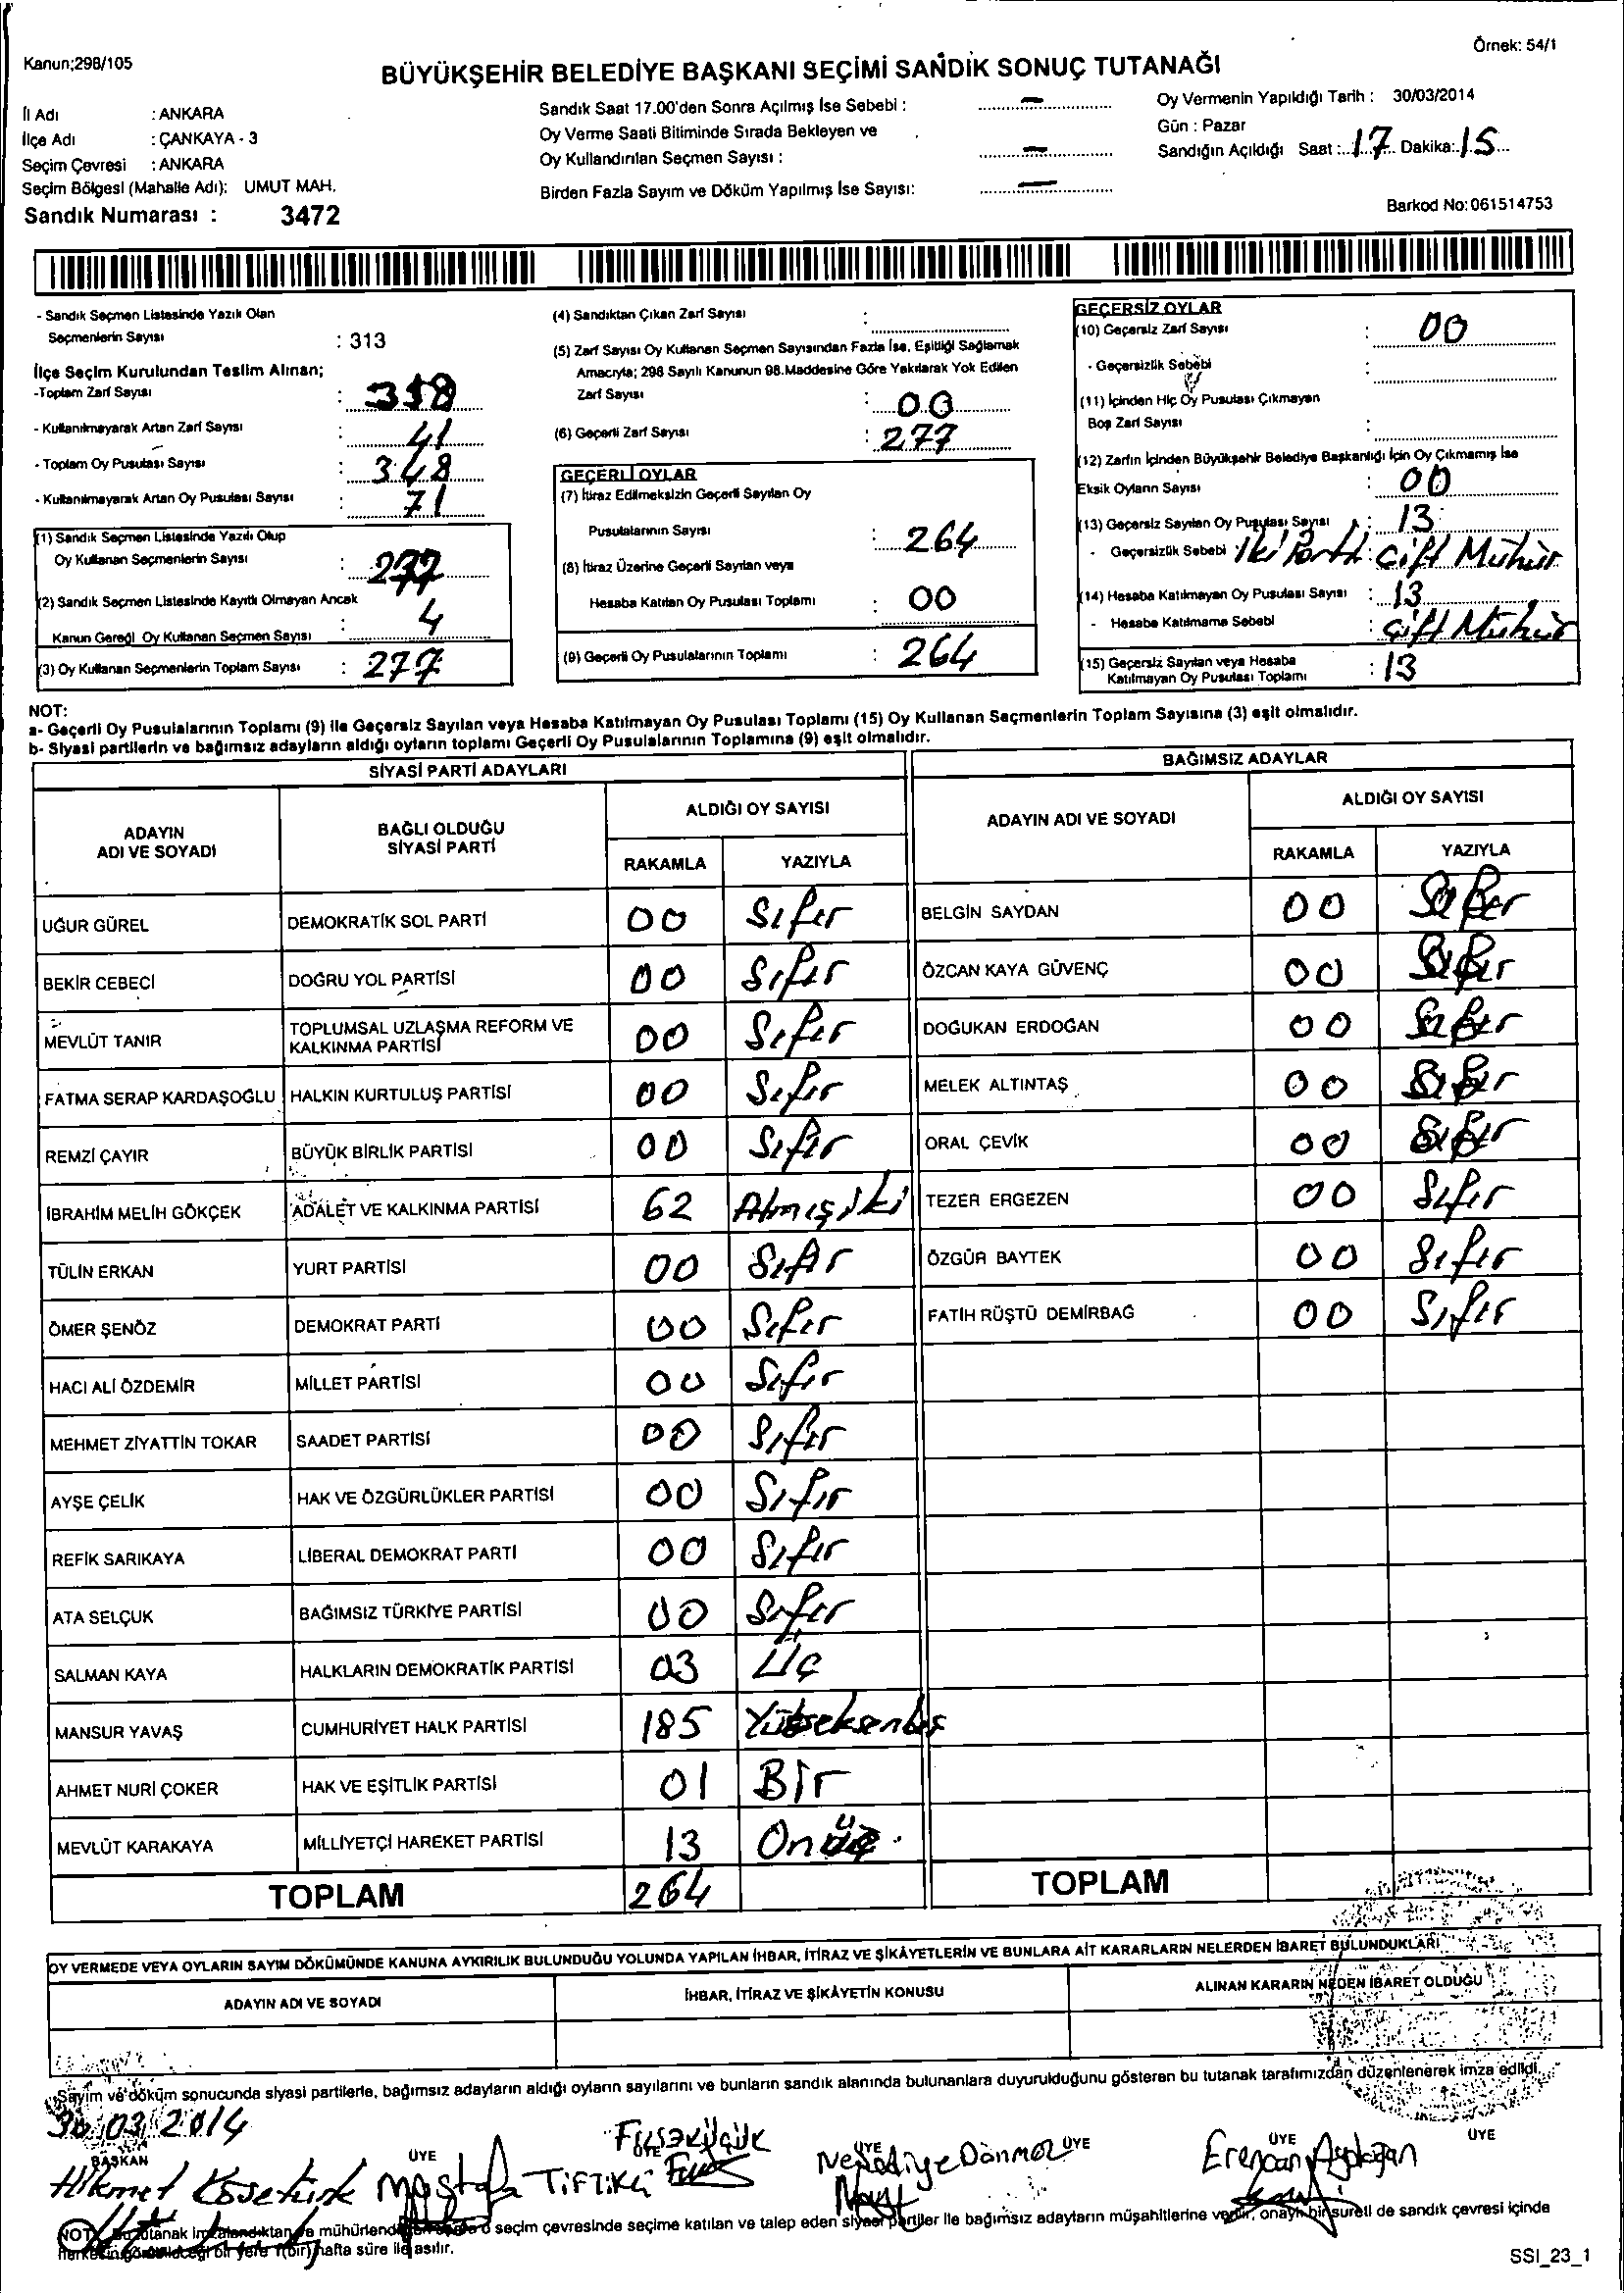 Örnek: 54/1
Kanun;298/105
BÜYÜKŞEHİR BELEDİYE BAŞKANI SEÇİMİ SANDIK SONUÇ TUTANAĞI
İl Adı : ANKARA
İlçe Adı : ÇANKAYA - 3
Seçim Çevresi : ANKARA
Seçim Bölgesi (Mahalle Adı): UMUT MAH.
Sandık Numarası : 3472
Sandık Saat 17.00'den Sonra Açılmış İse Sebebi : –
Oy Verme Saati Bitiminde Sırada Bekleyen ve
Oy Kullandırılan Seçmen Sayısı : –
Birden Fazla Sayım ve Döküm Yapılmış İse Sayısı: –
Oy Vermenin Yapıldığı Tarih : 30/03/2014
Gün : Pazar
Sandığın Açıldığı Saat : 17 Dakika: 15
Barkod No: 061514753
- Sandık Seçmen Listesinde Yazılı Olan
Seçmenlerin Sayısı : 313
İlçe Seçim Kurulundan Teslim Alınan;
-Toplam Zarf Sayısı : 318
- Kullanılmayarak Artan Zarf Sayısı : 41
- Toplam Oy Pusulası Sayısı : 348
- Kullanılmayarak Artan Oy Pusulası Sayısı : 71
(1) Sandık Seçmen Listesinde Yazılı Olup
Oy Kullanan Seçmenlerin Sayısı : 277
(2) Sandık Seçmen Listesinde Kayıtlı Olmayan Ancak
Kanun Gereği Oy Kullanan Seçmen Sayısı : 4
(3) Oy Kullanan Seçmenlerin Toplam Sayısı : 277
(4) Sandıktan Çıkan Zarf Sayısı :
(5) Zarf Sayısı Oy Kullanan Seçmen Sayısından Fazla İse, Eşitliği Sağlamak
Amacıyla; 298 Sayılı Kanunun 98.Maddesine Göre Yakılarak Yok Edilen
Zarf Sayısı : 00
(6) Geçerli Zarf Sayısı : 277
GEÇERLİ OYLAR
(7) İtiraz Edilmeksizin Geçerli Sayılan Oy
Pusulalarının Sayısı : 264
(8) İtiraz Üzerine Geçerli Sayılan veya
Hesaba Katılan Oy Pusulası Toplamı : 00
(9) Geçerli Oy Pusulalarının Toplamı : 264
GEÇERSİZ OYLAR
(10) Geçersiz Zarf Sayısı : 00
- Geçersizlik Sebebi :
(11) İçinden Hiç Oy Pusulası Çıkmayan
Boş Zarf Sayısı :
(12) Zarfın İçinden Büyükşehir Belediye Başkanlığı İçin Oy Çıkmamış İse
Eksik Oyların Sayısı : 00
(13) Geçersiz Sayılan Oy Pusulası Sayısı : 13
- Geçersizlik Sebebi : İki Partı Çift Mühür
(14) Hesaba Katılmayan Oy Pusulası Sayısı : 13
- Hesaba Katılmama Sebebi : Çift Mühür
(15) Geçersiz Sayılan veya Hesaba
Katılmayan Oy Pusulası Toplamı : 13
NOT:
a- Geçerli Oy Pusulalarının Toplamı (9) ile Geçersiz Sayılan veya Hesaba Katılmayan Oy Pusulası Toplamı (15) Oy Kullanan Seçmenlerin Toplam Sayısına (3) eşit olmalıdır.
b- Siyasi partilerin ve bağımsız adayların aldığı oyların toplamı Geçerli Oy Pusulalarının Toplamına (9) eşit olmalıdır.
SİYASİ PARTİ ADAYLARI
ADAYIN ADI VE SOYADI BAĞLI OLDUĞU SİYASİ PARTİ ALDIĞI OY SAYISI
RAKAMLA YAZIYLA
UĞUR GÜREL DEMOKRATİK SOL PARTİ 00 Sıfır
BEKİR CEBECİ DOĞRU YOL PARTİSİ 00 Sıfır
MEVLÜT TANIR TOPLUMSAL UZLAŞMA REFORM VE KALKINMA PARTİSİ 00 Sıfır
FATMA SERAP KARDAŞOĞLU HALKIN KURTULUŞ PARTİSİ 00 Sıfır
REMZİ ÇAYIR BÜYÜK BİRLİK PARTİSİ 00 Sıfır
İBRAHİM MELİH GÖKÇEK ADALET VE KALKINMA PARTİSİ 62 Atmış iki
TÜLİN ERKAN YURT PARTİSİ 00 Sıfır
ÖMER ŞENÖZ DEMOKRAT PARTİ 00 Sıfır
HACI ALİ ÖZDEMİR MİLLET PARTİSİ 00 Sıfır
MEHMET ZİYATTİN TOKAR SAADET PARTİSİ 00 Sıfır
AYŞE ÇELİK HAK VE ÖZGÜRLÜKLER PARTİSİ 00 Sıfır
REFİK SARIKAYA LİBERAL DEMOKRAT PARTİ 00 Sıfır
ATA SELÇUK BAĞIMSIZ TÜRKİYE PARTİSİ 00 Sıfır
SALMAN KAYA HALKLARIN DEMOKRATİK PARTİSİ 03 Üç
MANSUR YAVAŞ CUMHURİYET HALK PARTİSİ 185 Yüzseksenbeş
AHMET NURİ ÇOKER HAK VE EŞİTLİK PARTİSİ 01 Bir
MEVLÜT KARAKAYA MİLLİYETÇİ HAREKET PARTİSİ 13 Onüç
TOPLAM 264
BAĞIMSIZ ADAYLAR
ADAYIN ADI VE SOYADI ALDIĞI OY SAYISI
RAKAMLA YAZIYLA
BELGİN SAYDAN 00 Sıfır
ÖZCAN KAYA GÜVENÇ 00 Sıfır
DOĞUKAN ERDOĞAN 00 Sıfır
MELEK ALTINTAŞ 00 Sıfır
ORAL ÇEVİK 00 Sıfır
TEZER ERGEZEN 00 Sıfır
ÖZGÜR BAYTEK 00 Sıfır
FATİH RÜŞTÜ DEMİRBAĞ 00 Sıfır
TOPLAM
OY VERMEDE VEYA OYLARIN SAYIM DÖKÜMÜNDE KANUNA AYKIRILIK BULUNDUĞU YOLUNDA YAPILAN İHBAR, İTİRAZ VE ŞİKÂYETLERİN VE BUNLARA AİT KARARLARIN NELERDEN İBARET BULUNDUKLARI
ADAYIN ADI VE SOYADI İHBAR, İTİRAZ VE ŞİKÂYETİN KONUSU ALINAN KARARIN NEDEN İBARET OLDUĞU
Sayım ve döküm sonucunda siyasi partilerle, bağımsız adayların aldığı oyların sayılarını ve bunların sandık alanında bulunanlara duyurulduğunu gösteren bu tutanak tarafımızdan düzenlenerek imza edildi.
30/03/2014
BAŞKAN ÜYE ÜYE ÜYE ÜYE ÜYE ÜYE
Hikmet Kösetürk Mustafa TİFTİKÇİ Nebediye Dönmez Erencan Aydoğan
NOT: Bu tutanak imzalandıktan ve mühürlendikten sonra o seçim çevresinde seçime katılan ve talep eden siyasi partiler ile bağımsız adayların müşahitlerine verilir, onaylı bir sureti de sandık çevresi içinde
herkesin görebileceği bir yere 1(bir) hafta süre ile asılır.
SSI_23_1